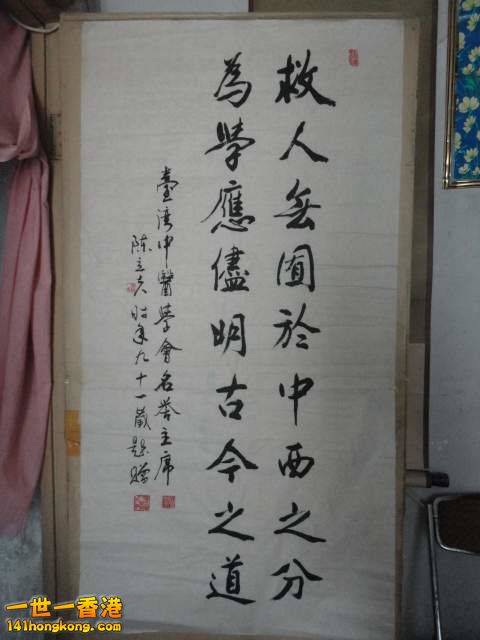 救人無囿於中西之分
為學應儘明古今之道
臺灣中醫學會名譽主席
陳立夫時年九十一歲題贈
一世一香港
141hongkong.com